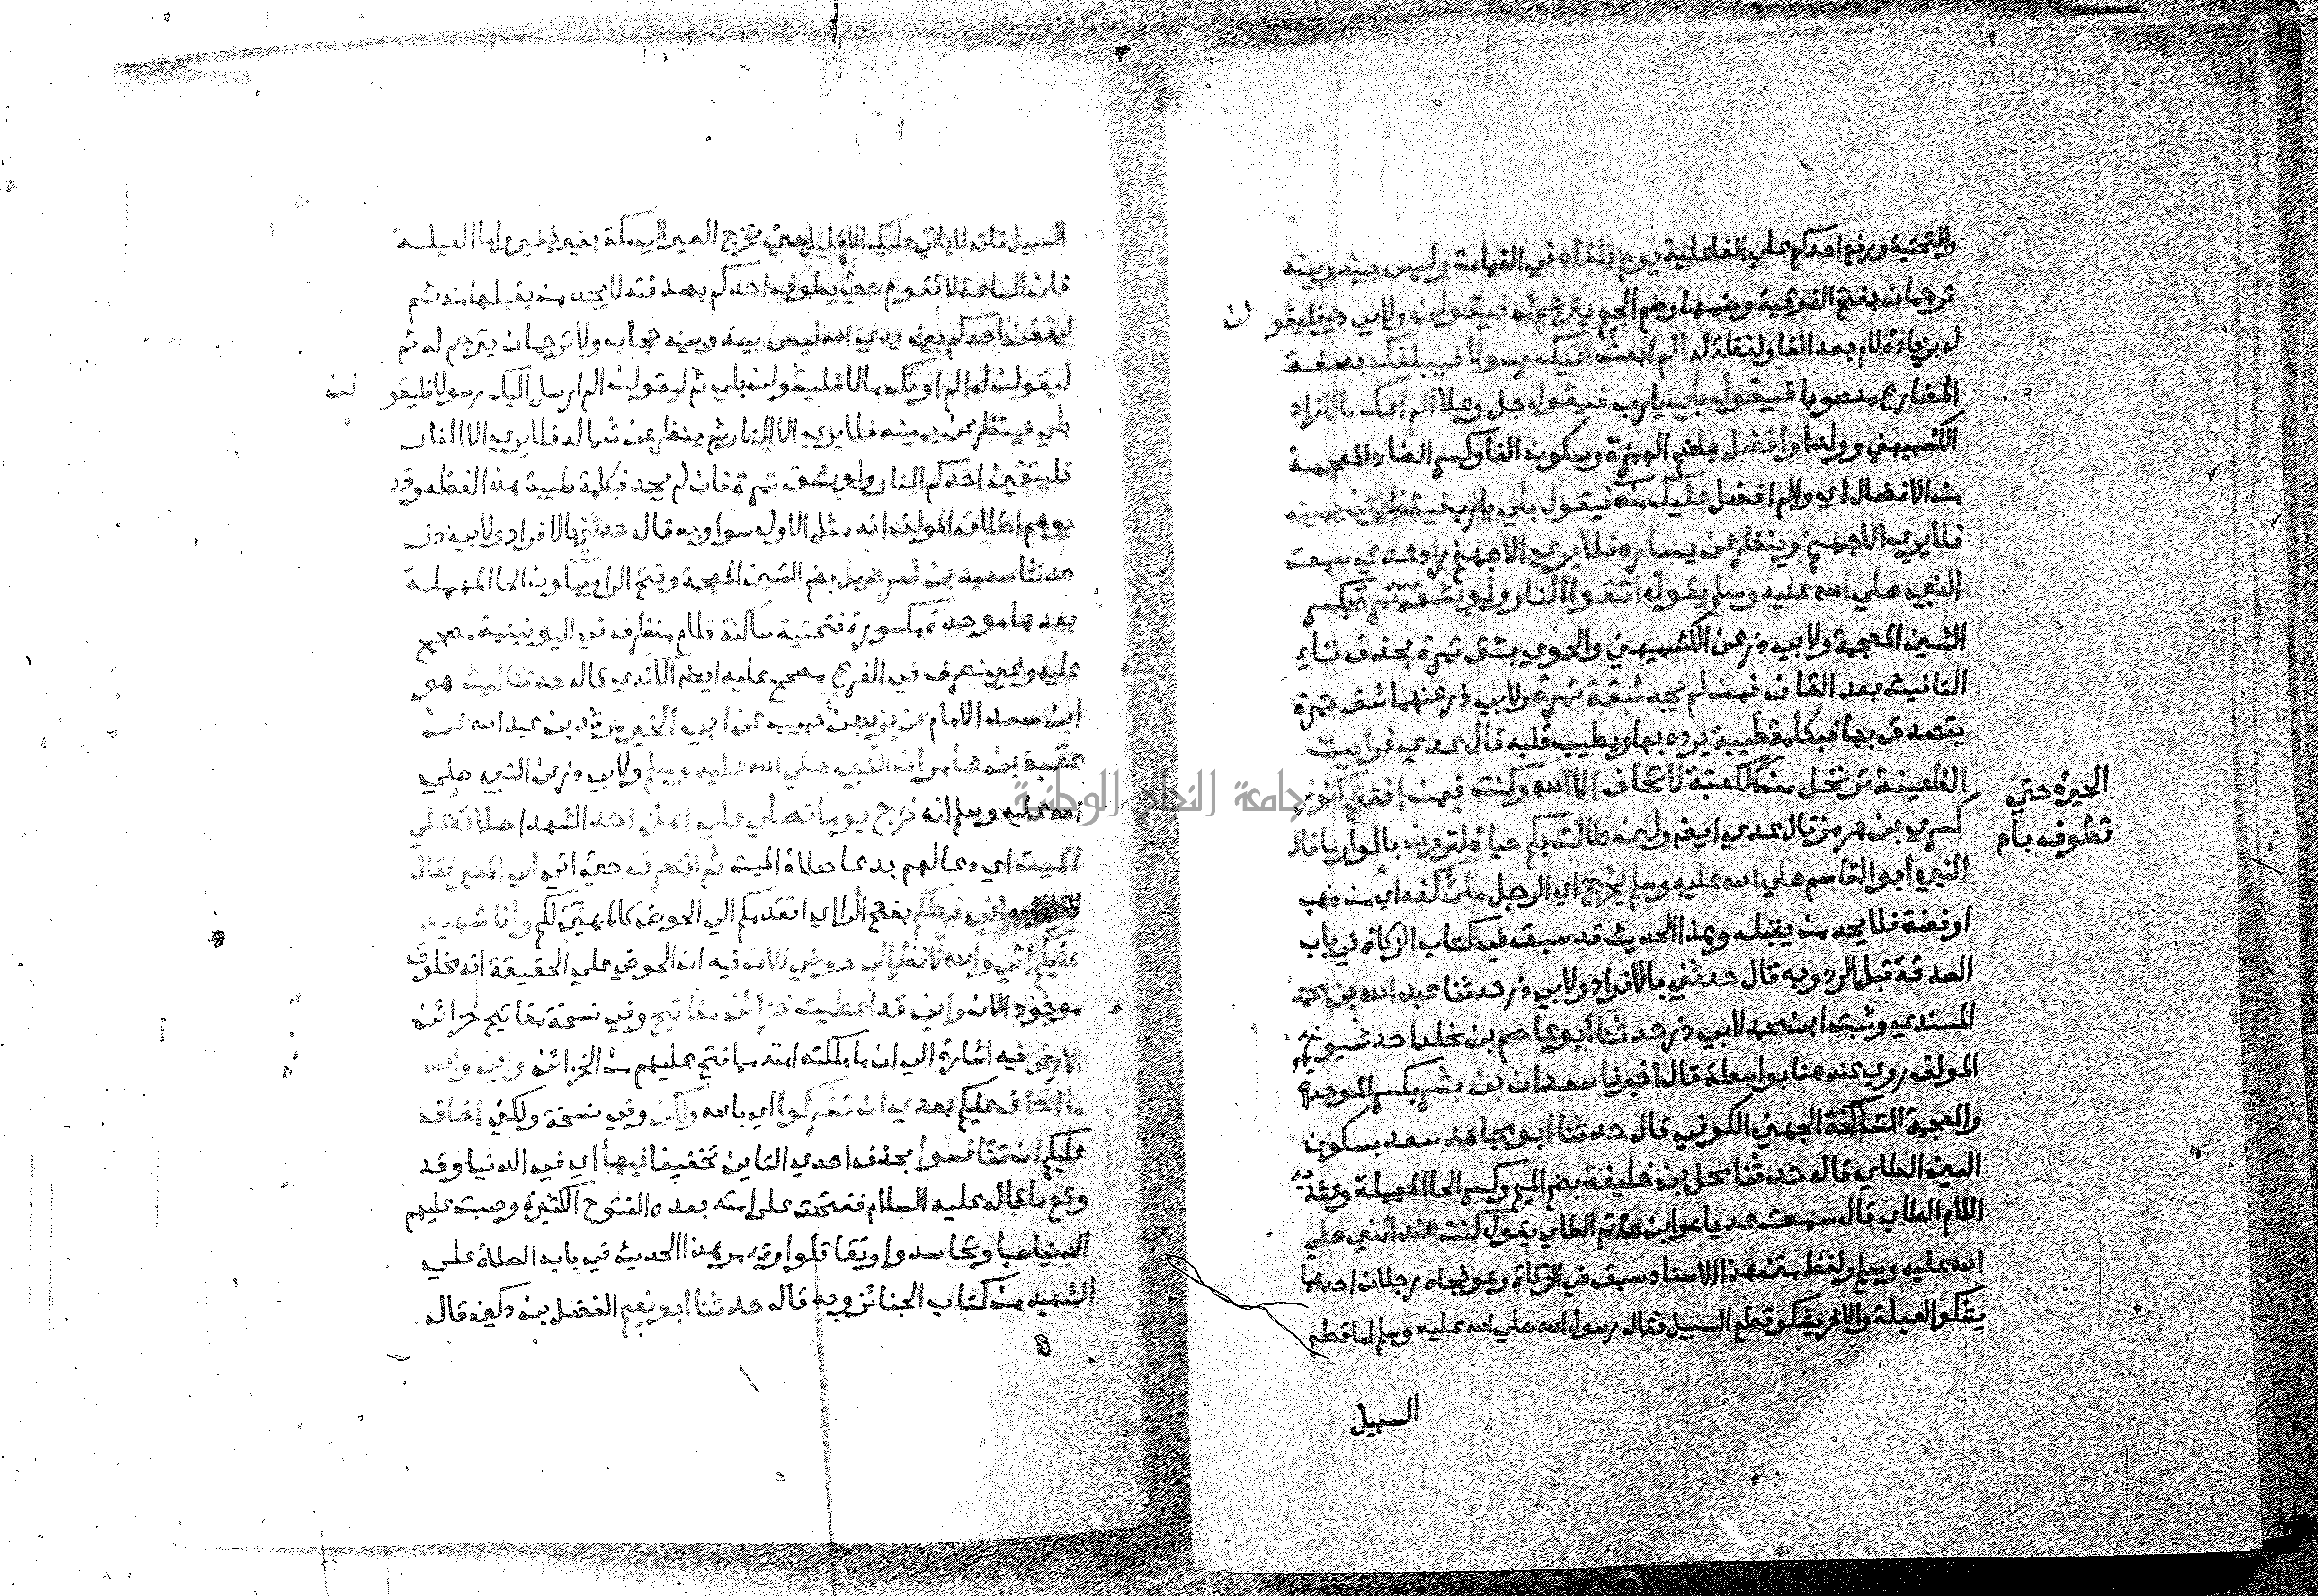 والتحتية ورفع احدكم علي الفاعلية يوم يلقاه في القيامة وليس بينه وبينه
ترجمان بفتح الفوقية وضمها وضم الجيم يترجم له فيقولن ولابي ذر فليقو لن
له بزيادة لام بعد الفا ولفظة له الم ابعث اليك رسولا فيبلغك بصفة
المضارع منصوبا فيقول بلي يارب فيقول جل وعلا الم اعطك مالا زاد
الكشميهني وولدا وافضل بضم الهمزة وسكون الفا وكسر الضاد المعجمة
من الافضال اي والم افضل عليك منه فيقول بلي يارب فينظر عن يمينه
فلا يري الا جهنم وينظر عن يساره فلا يري الا جهنم زاد عدي سمعت
النبي صلي الله عليه وسلم يقول اتقوا النار ولو بشقة تمرة بكسر
الشين المعجمة ولابي ذر عن الكشميهني والحموي بشق تمرة بحذف تا
التانيث بعد القاف فمن لم يجد شقة تمرة ولابي ذر عنهما شق تمرة
يتصدق بها فبكلمة طيبة يرده بها ويطيب قلبه قال عدي فرايت
الظعينة ترتحل من الكعبة لا تخاف الا الله وكنت فيمن افتتح كنوز
الحيرة حتي
تطوف با
كسري بن هرمز قال عدي ايضا ولين طالت بكم حياة لترون بالواو ما قال
النبي ابو القاسم صلي الله عليه وسلم يخرج اي الرجل ملئ كفه اي من ذهب
او فضة فلا يجد من يقبله وهذا الحديث قد سبق في كتاب الزكاة في باب
الصدقة قبل الرد وبه قال حدثني بالافراد ولابي ذر حدثنا عبد الله بن محمد
المسندي وثبت ابن محمد لابي ذر حدثنا ابو عاصم بن مخلد احد شيوخ
المولف روي عنه هنا بواسطة قال اخبرنا سعدان بن بشر بكسر الموحدة
والمعجمة الساكنة الجهني الكوفي قال حدثنا ابو مجاهد سعد بسكون
العين الطاي قال حدثنا محل بن خليفة بضم الميم وكسر الحا المهملة وتشديد
اللام الطاي قال سمعت عديا هو ابن حاتم الطاي يقول كنت عند النبي صلي
الله عليه وسلم ولفظ متن هذا الاسناد سبق في الزكاة وهو فجاه رجلان احدهما
يشكو العيلة والاخر يشكو قطع السبيل فقال رسول الله صلي الله عليه وسلم اما قطع
السبيل
السبيل فانه لا ياتي عليك الا قليل حتي تخرج العير الي مكة بغير خفير واما العيلة
فان الساعة لا تقوم حتي يطوف احدكم بصدقته لا يجد من يقبلها منه ثم
ليقفن احدكم بين يدي الله ليس بينه وبينه حجاب ولا ترجمان يترجم له ثم
ليقولن له الم اوتك مالا فليقولن بلي ثم ليقولن الم ارسل اليك رسولا فليقو لن
بلي فينظر عن يمينه فلا يري الا النار ثم ينظر عن شماله فلا يري الا النار
فليتقين احدكم النار ولو بشق تمرة فان لم يجد فبكلمة طيبة هذا لفظه وقد
يوهم اطلاق المولف انه مثل الاول سوا وبه قال حدثني بالافراد ولابي ذر
حدثنا سعيد بن شرحبيل بضم الشين المعجمة وفتح الرا وسكون الحا المهملة
بعدها موحدة مكسورة فتحتية ساكنة فلام منظرف في اليونينية مصحح
عليه وغير منصرف في الفرع مصحح عليه ايضا الكندي قال حدثنا ليث هو
ابن سعد الامام عن يزيد بن حبيب عن ابي الخير مرثد بن عبد الله عن
عقبة بن عامر ان النبي صلي الله عليه وسلم ولابي ذر عن النبي صلي
الله عليه وسلم انه خرج يوما فصلي علي اهل احد الشهدا صلاته علي
الميت اي دعا لهم بدعا صلاة الميت ثم انصرف حتي اتي الي المنبر فقال
لاصحابه اني فرطكم بفتح الرا اي اتقدمكم الي الحوض كالمهيئ لكم وانا شهيد
عليكم اني والله لانظر الي حوضي الان فيه ان الحوض علي الحقيقة انه مخلوق
موجود الان واني قد اعطيت خزائن مفاتيح وفي نسخة مفاتيح خزائن
الارض فيه اشارة الي ان ما ملكته امته مما فتح عليهم من الخزائن واني والله
ما اخاف عليكم بعدي ان تشركوا اي بالله ولكن وفي نسخة ولكني اخاف
عليكم ان تنافسوا بحذف احدي التاين تخفيفا فيها اي في الدنيا وقد
وقع ما قاله عليه السلام ففتحت علي امته بعده الفتوح الكثيرة وصبت عليهم
الدنيا صبا وتحاسدوا وتقاتلوا وقد مر هذا الحديث في باب الصلاة علي
الشهيد من كتاب الجنائز وبه قال حدثنا ابو نعيم الفضل بن دكين قال
جامعة النجاح الوطنية